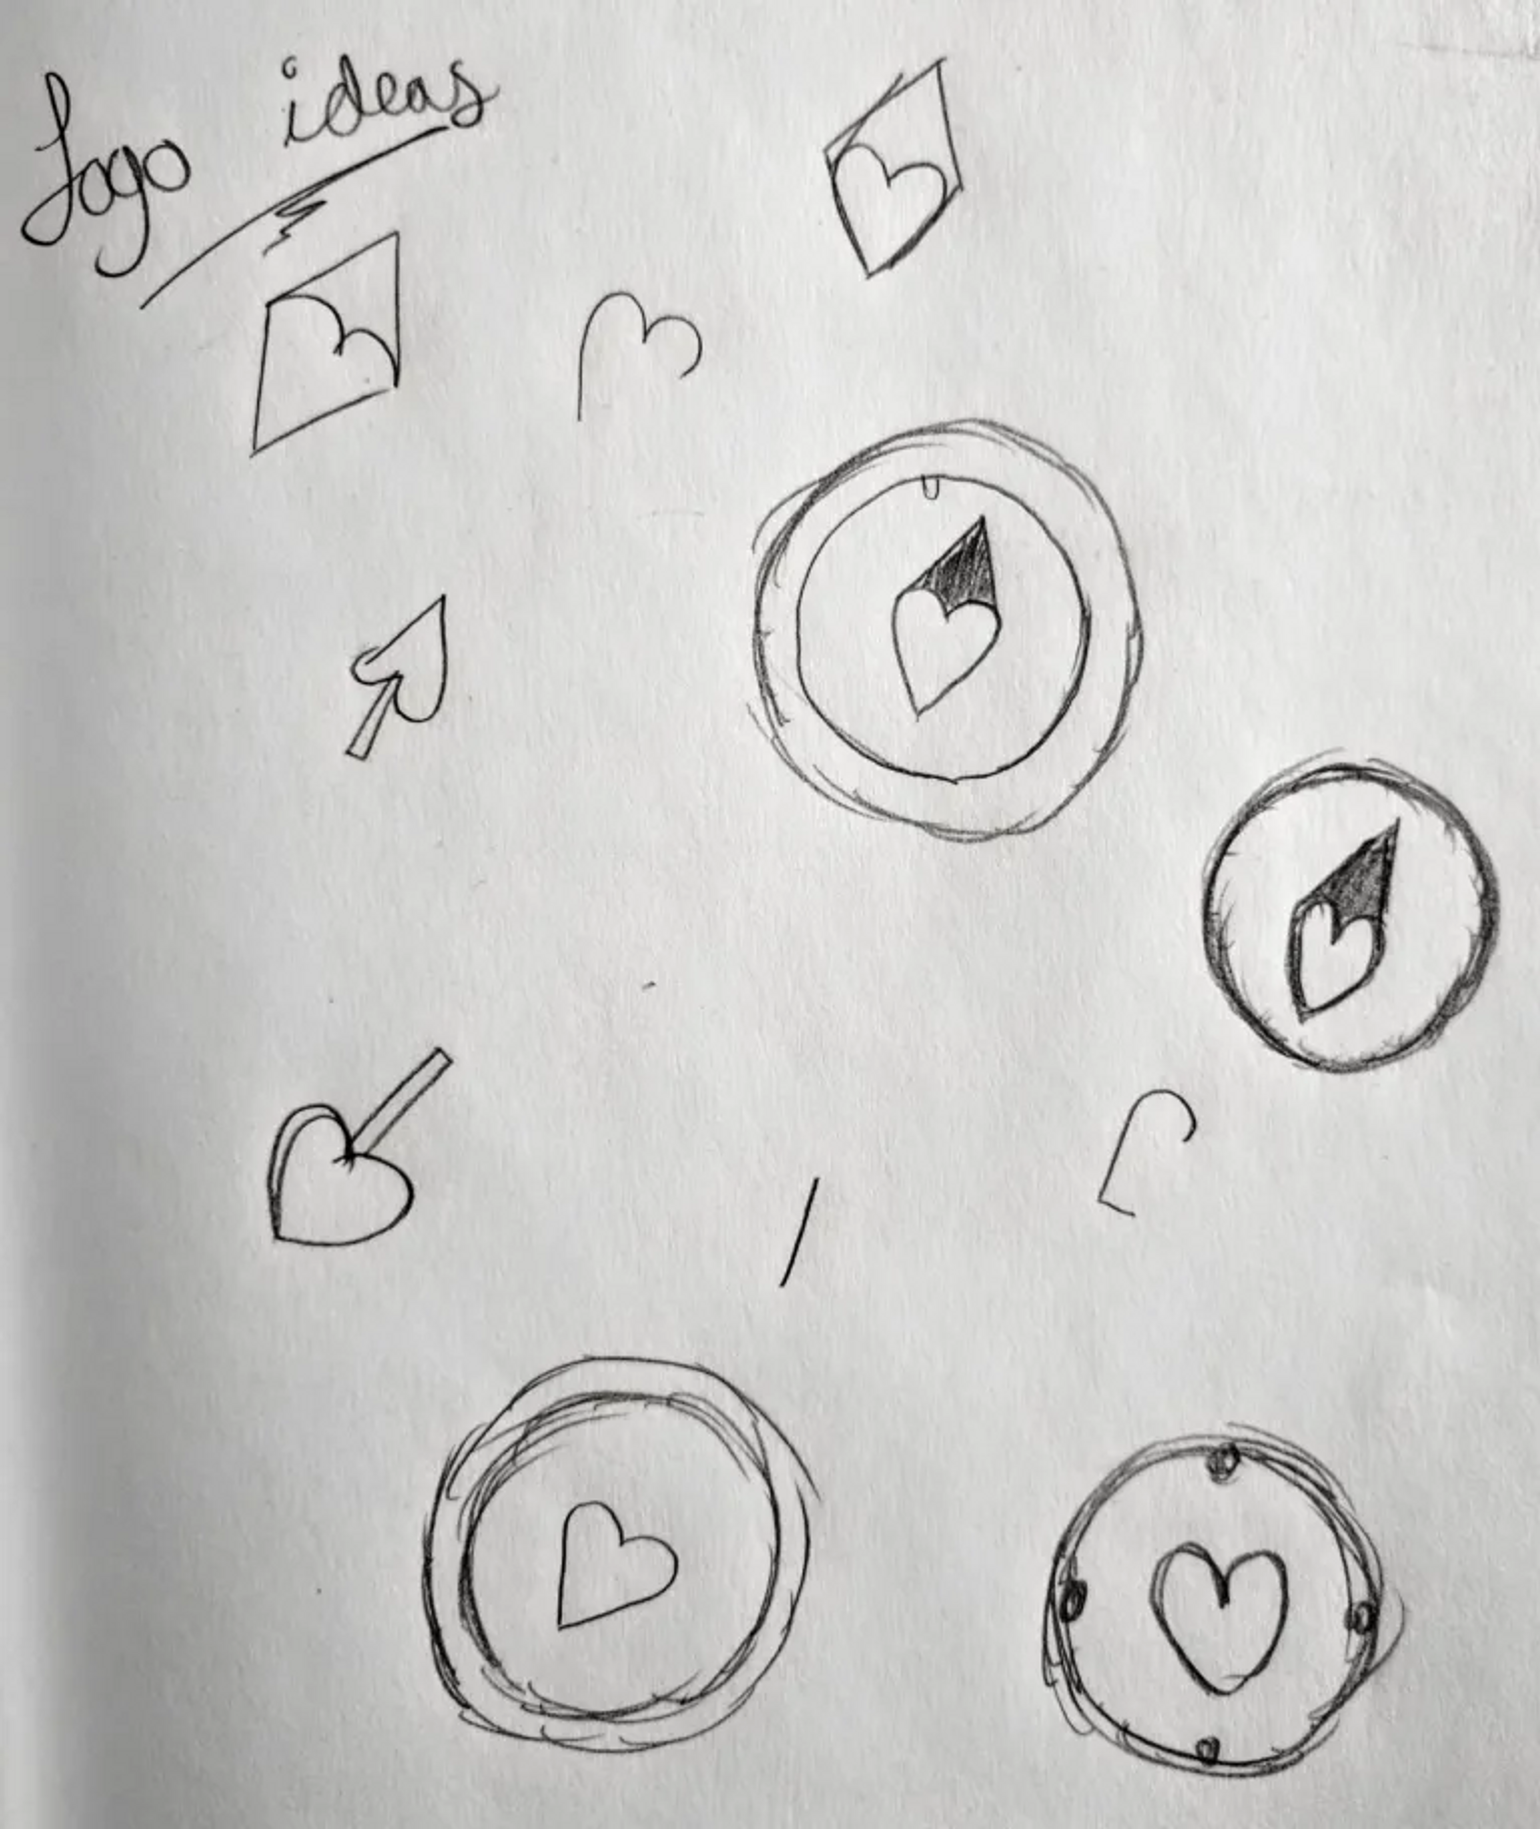 Logo ideas